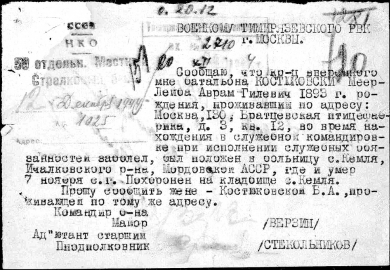 с. 20.12
СССР
НКО
ВОЕНКОМ ТИМИРЯЗЕВСКОГО РВК
г. МОСКВЫ.
отдельн. Местн
Стрелковый
10
Декабря 1944
1025
Сообщаю, что кр-ц вверенного
мне батальона КОСТЮКОВСКИЙ Меер
Лейба Аврам-Гилевич 1893 г. ро-
ждения, проживавший по адресу:
Москва, 130, Братцевская птицефаб-
рика, д. 3, кв. 12, во время на-
хождения в служебной командировке
при исполнении служебных обя-
занностей заболел, был положен в больницу с. Кемля,
Ичалковского р-на, Мордовской АССР, где и умер
7 ноября с.г. Похоронен на кладбище с. Кемля.
Прошу сообщить жене - Костюковской Б.А., про-
живающей по тому же адресу.
Командир б-на
Майор /ВЕРЗИН/
Ад"ютант старший
Подполковник /СТЕКОЛЬНИКОВ/